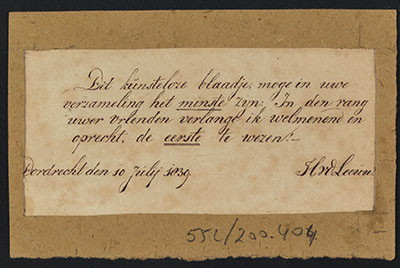 Dit kunsteloze blaadje, moge in uwe
verzameling het minste zyn: In den rang
uwer vrienden verlange ik welmenend en
oprecht, de eerste te wezen!—
Dordrecht den 10 July 1839
552/200.404